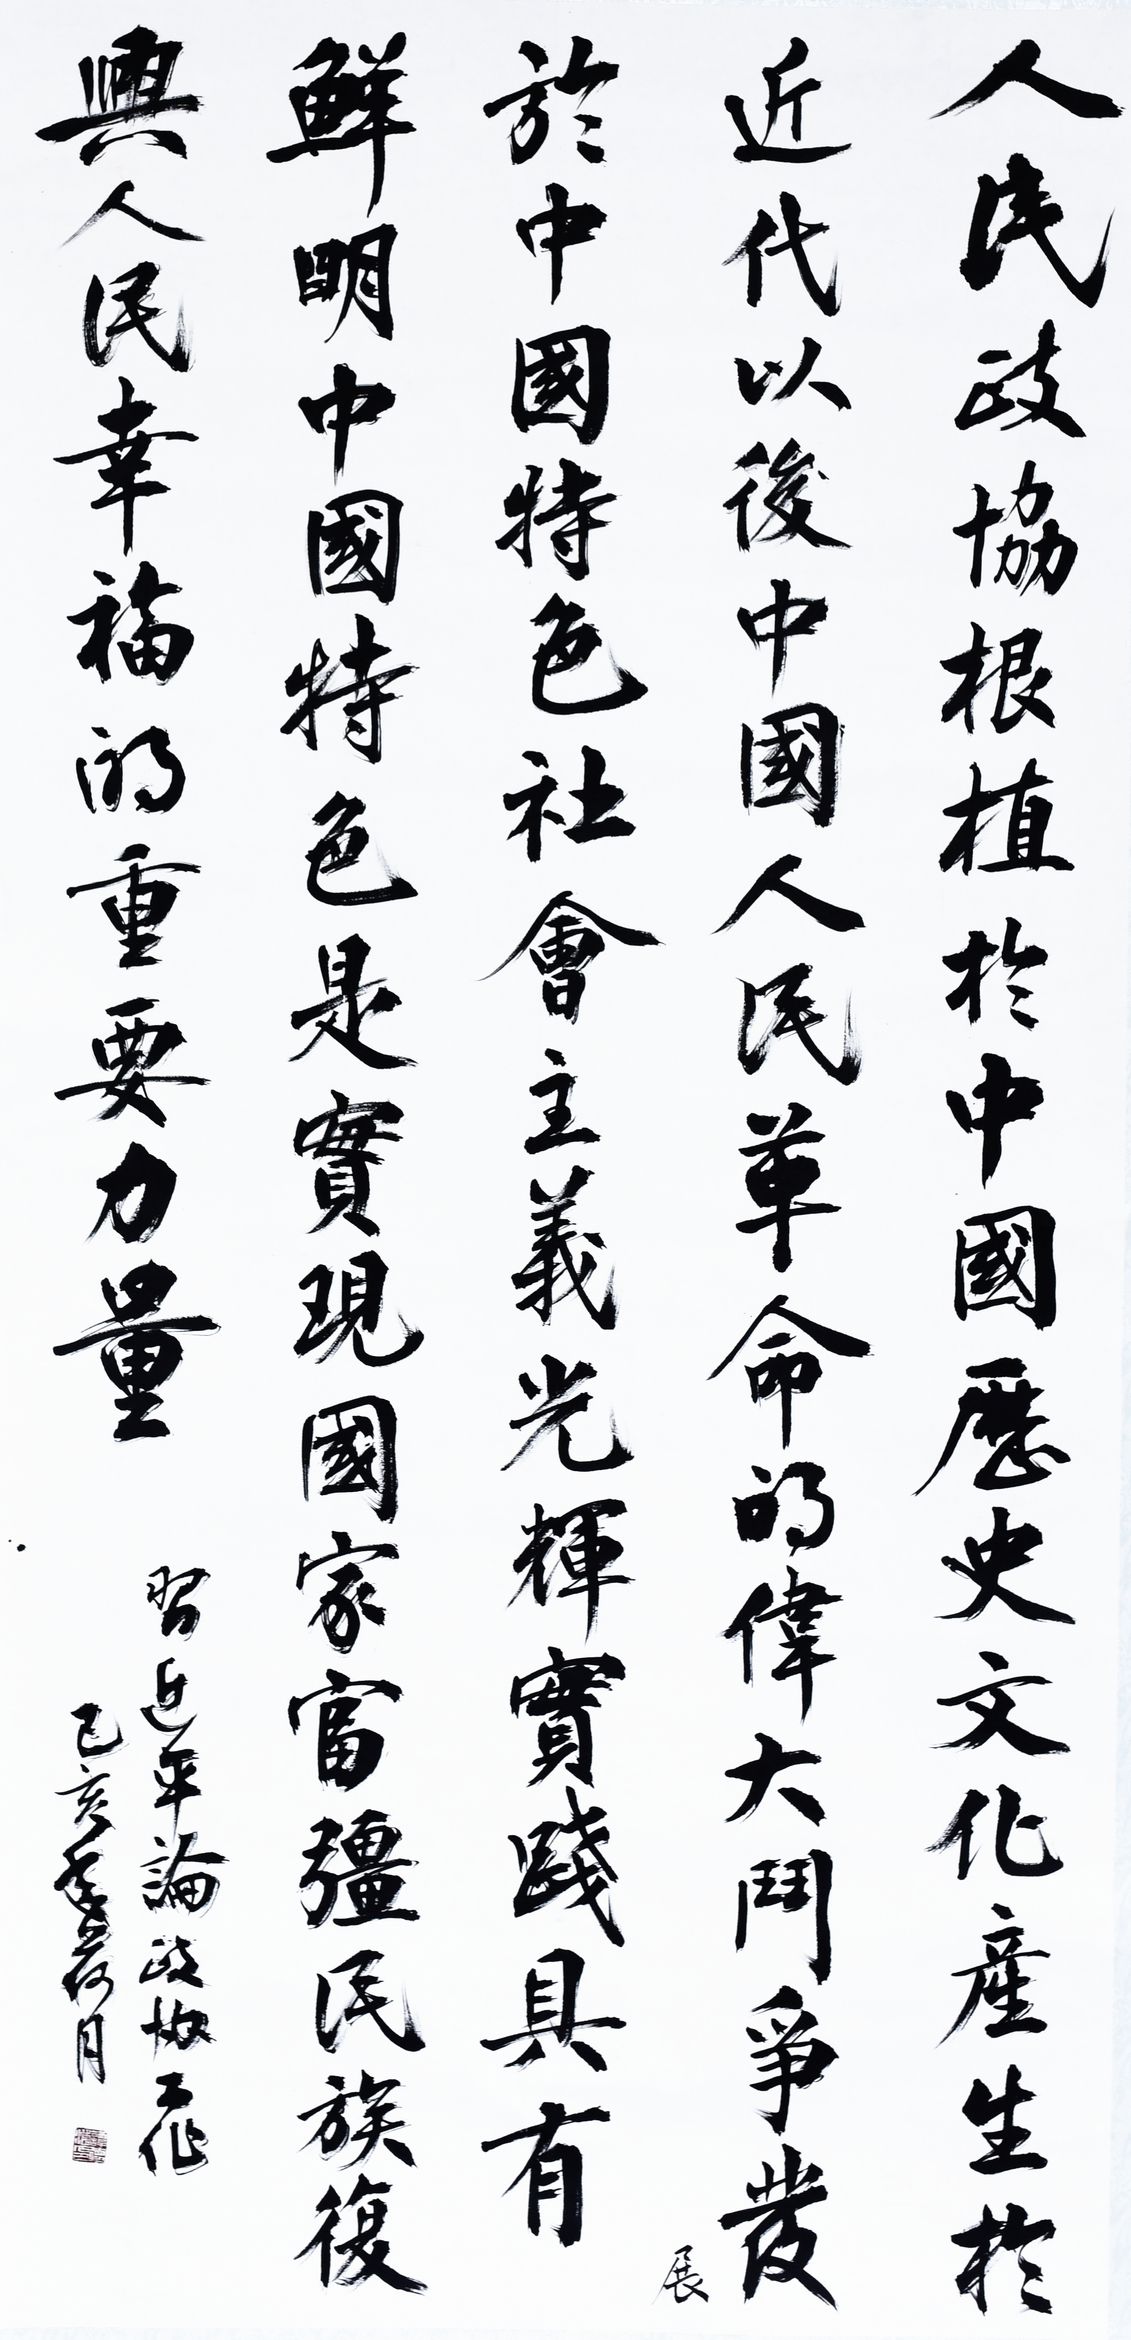 人民政協根植於中國歷史文化產生於
近代以後中國人民革命的偉大鬥爭發
展
於中國特色社會主義光輝實踐具有
鮮明中國特色是實現國家富彊民族復
興人民幸福的重要力量
習近平論政協工作
己亥年荷月